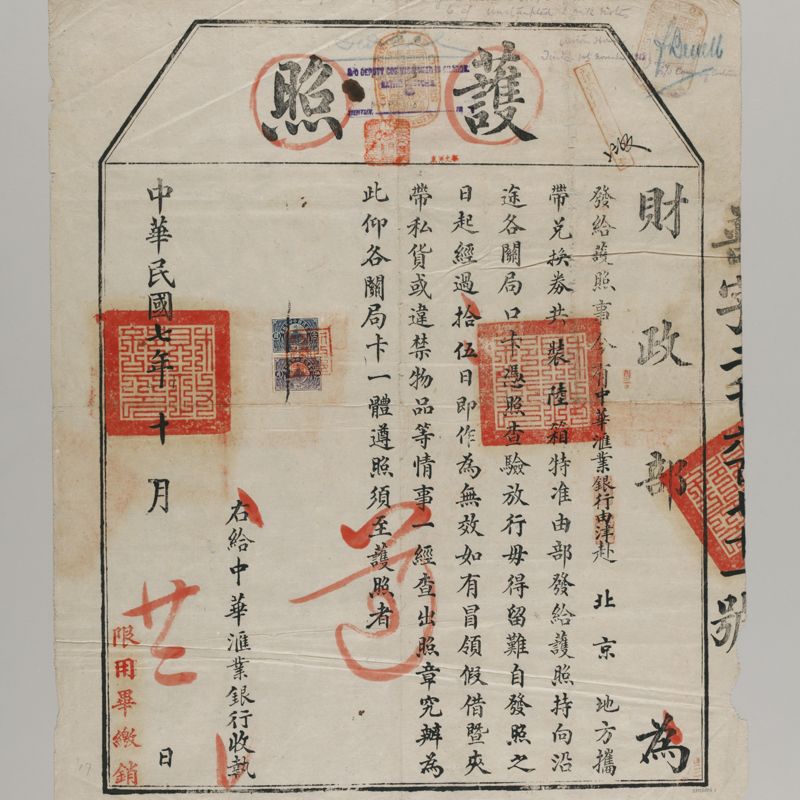 護照
財政部為
發給護照事今有中華滙業銀行由津赴北京地方攜
帶兌換券共裝陸箱特准由部發給護照持向沿
途各關局口卡憑照查驗放行毋得留難自發照之
日起經過拾伍日即作為無效如有冒領假借暨夾
帶私貨或違禁物品等情事一經查出照章究辦為
此仰各關局卡一體遵照須至護照者
遵
右給中華滙業銀行收執
中華民國七年十月廿二日
限用畢繳銷